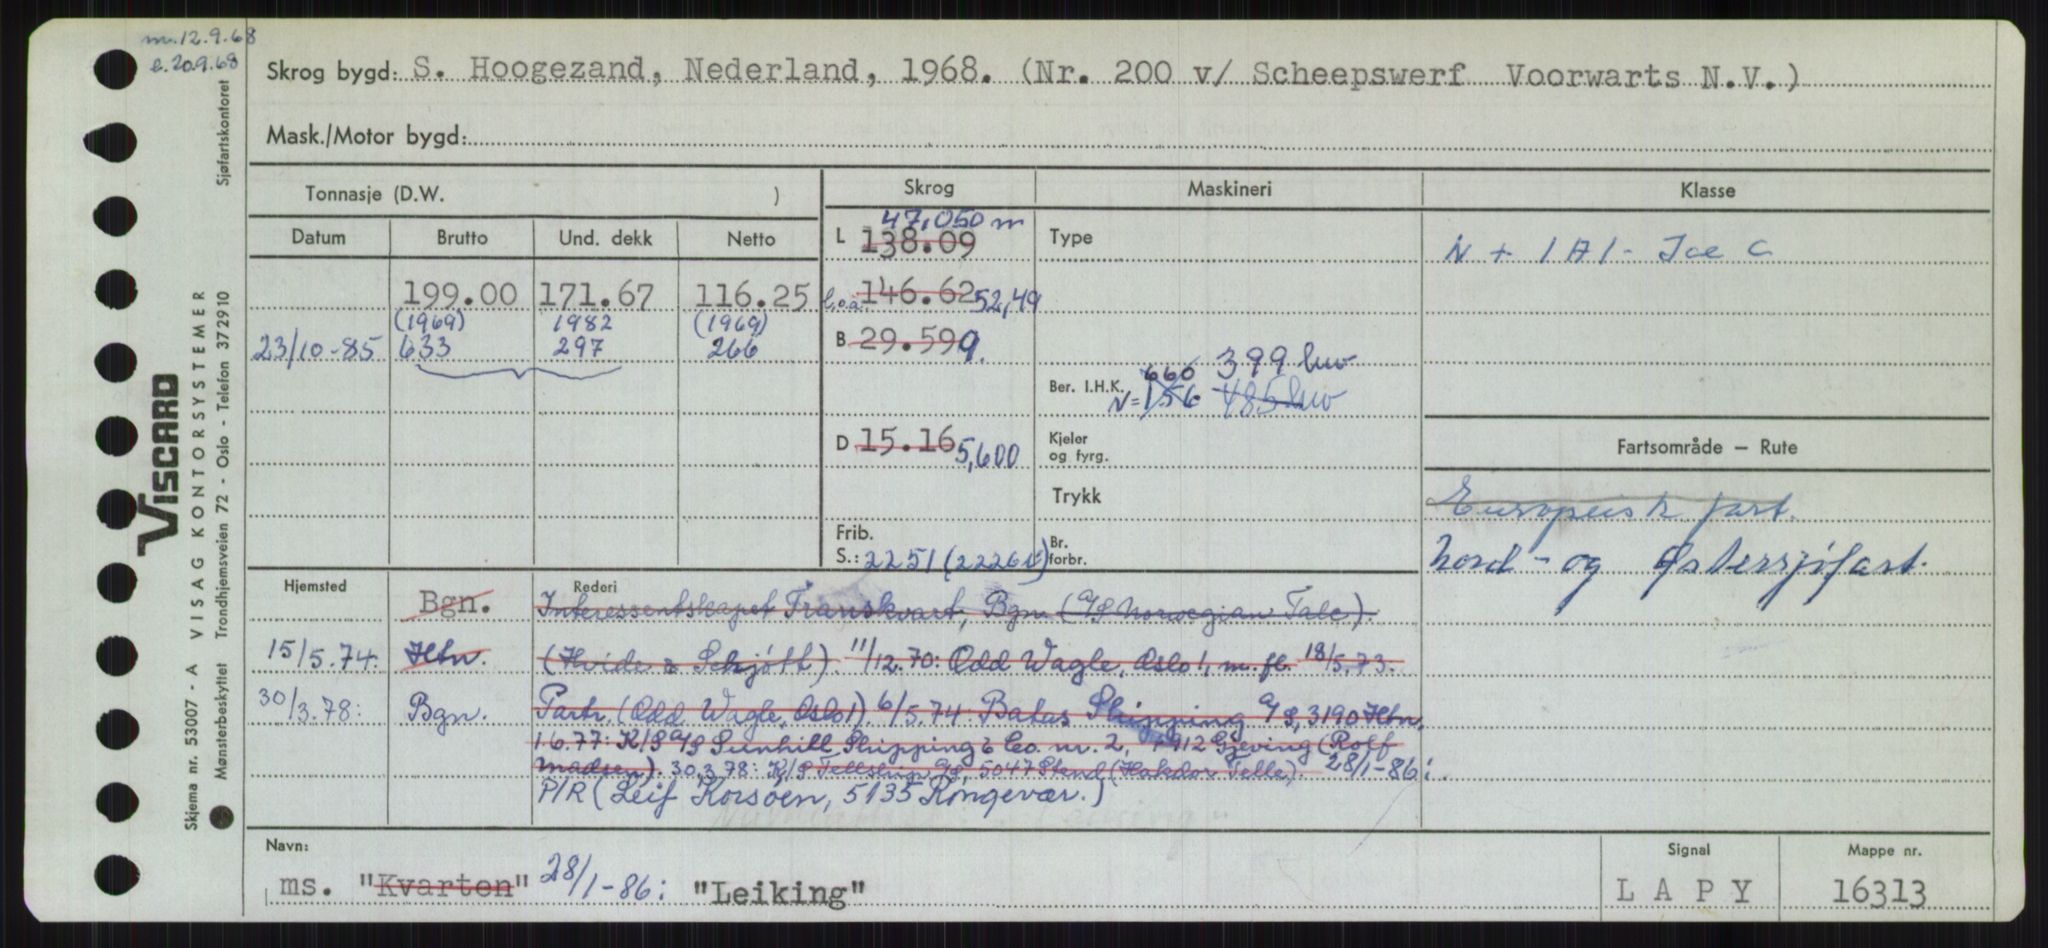 m. 12.9.68
e. 20.9.68
Skrog bygd: S. Hoogezand, Nederland, 1968. (Nr. 200 v/ Scheepswerf Voorwarts N.V.)
Mask./Motor bygd:
Tonnasje (D.W. )
Skrog
Maskineri
Klasse
Datum Brutto Und. dekk Netto
47,050 m
L 138.09
Type
N + 1A1 - Ice C
199.00 171.67 116.25
l.o.a. 146.62 52,49
(1969) 1982 (1969)
23/10-85 633 297 266
B 29.59 9.
399 kw
Ber. I.H.K. 660
N= 156 485 kw
D 15.16 5,600
Kjeler
og fyrg.
Fartsområde — Rute
Trykk
Europeisk fart.
Frib.
S.: 2251 (2226)
Br.
forbr.
Nord- og Østersjøfart.
Hjemsted
Rederi
Bgn. Interessentskapet Franskvart, Bgn (A/S Norwegian Talc).
15/5.74: Htn. (Hvide & Schjøtt). 11/12.70: Odd Wagle, Oslo 1, m. fl. 18/5.73.
30/3.78: Bgn. Partr. (Odd Wagle, Oslo 1). 6/5.74 Batas Shipping A/S, 3190 Htn.
1.6.77: K/S A/S Sunhill Shipping & Co. nr. 2, 4912 Gjeving (Rolf
Madsen). 30.3.78: K/S Telleship A/S, 5047 Stend (Halvdor Telle). 28/1-86:
P/R (Leif Korsøen, 5135 Rongevær.)
Navn:
ms. "Kvarten" 28/1-86: "Leiking"
Signal
L A P Y
Mappe nr.
16313
Sjøfartskontoret
VISCARD
VISAG KONTORSYSTEMER
Trondhjemsveien 72 - Oslo - Telefon 372910
Skjema nr. 53007 - A
Mønsterbeskyttet